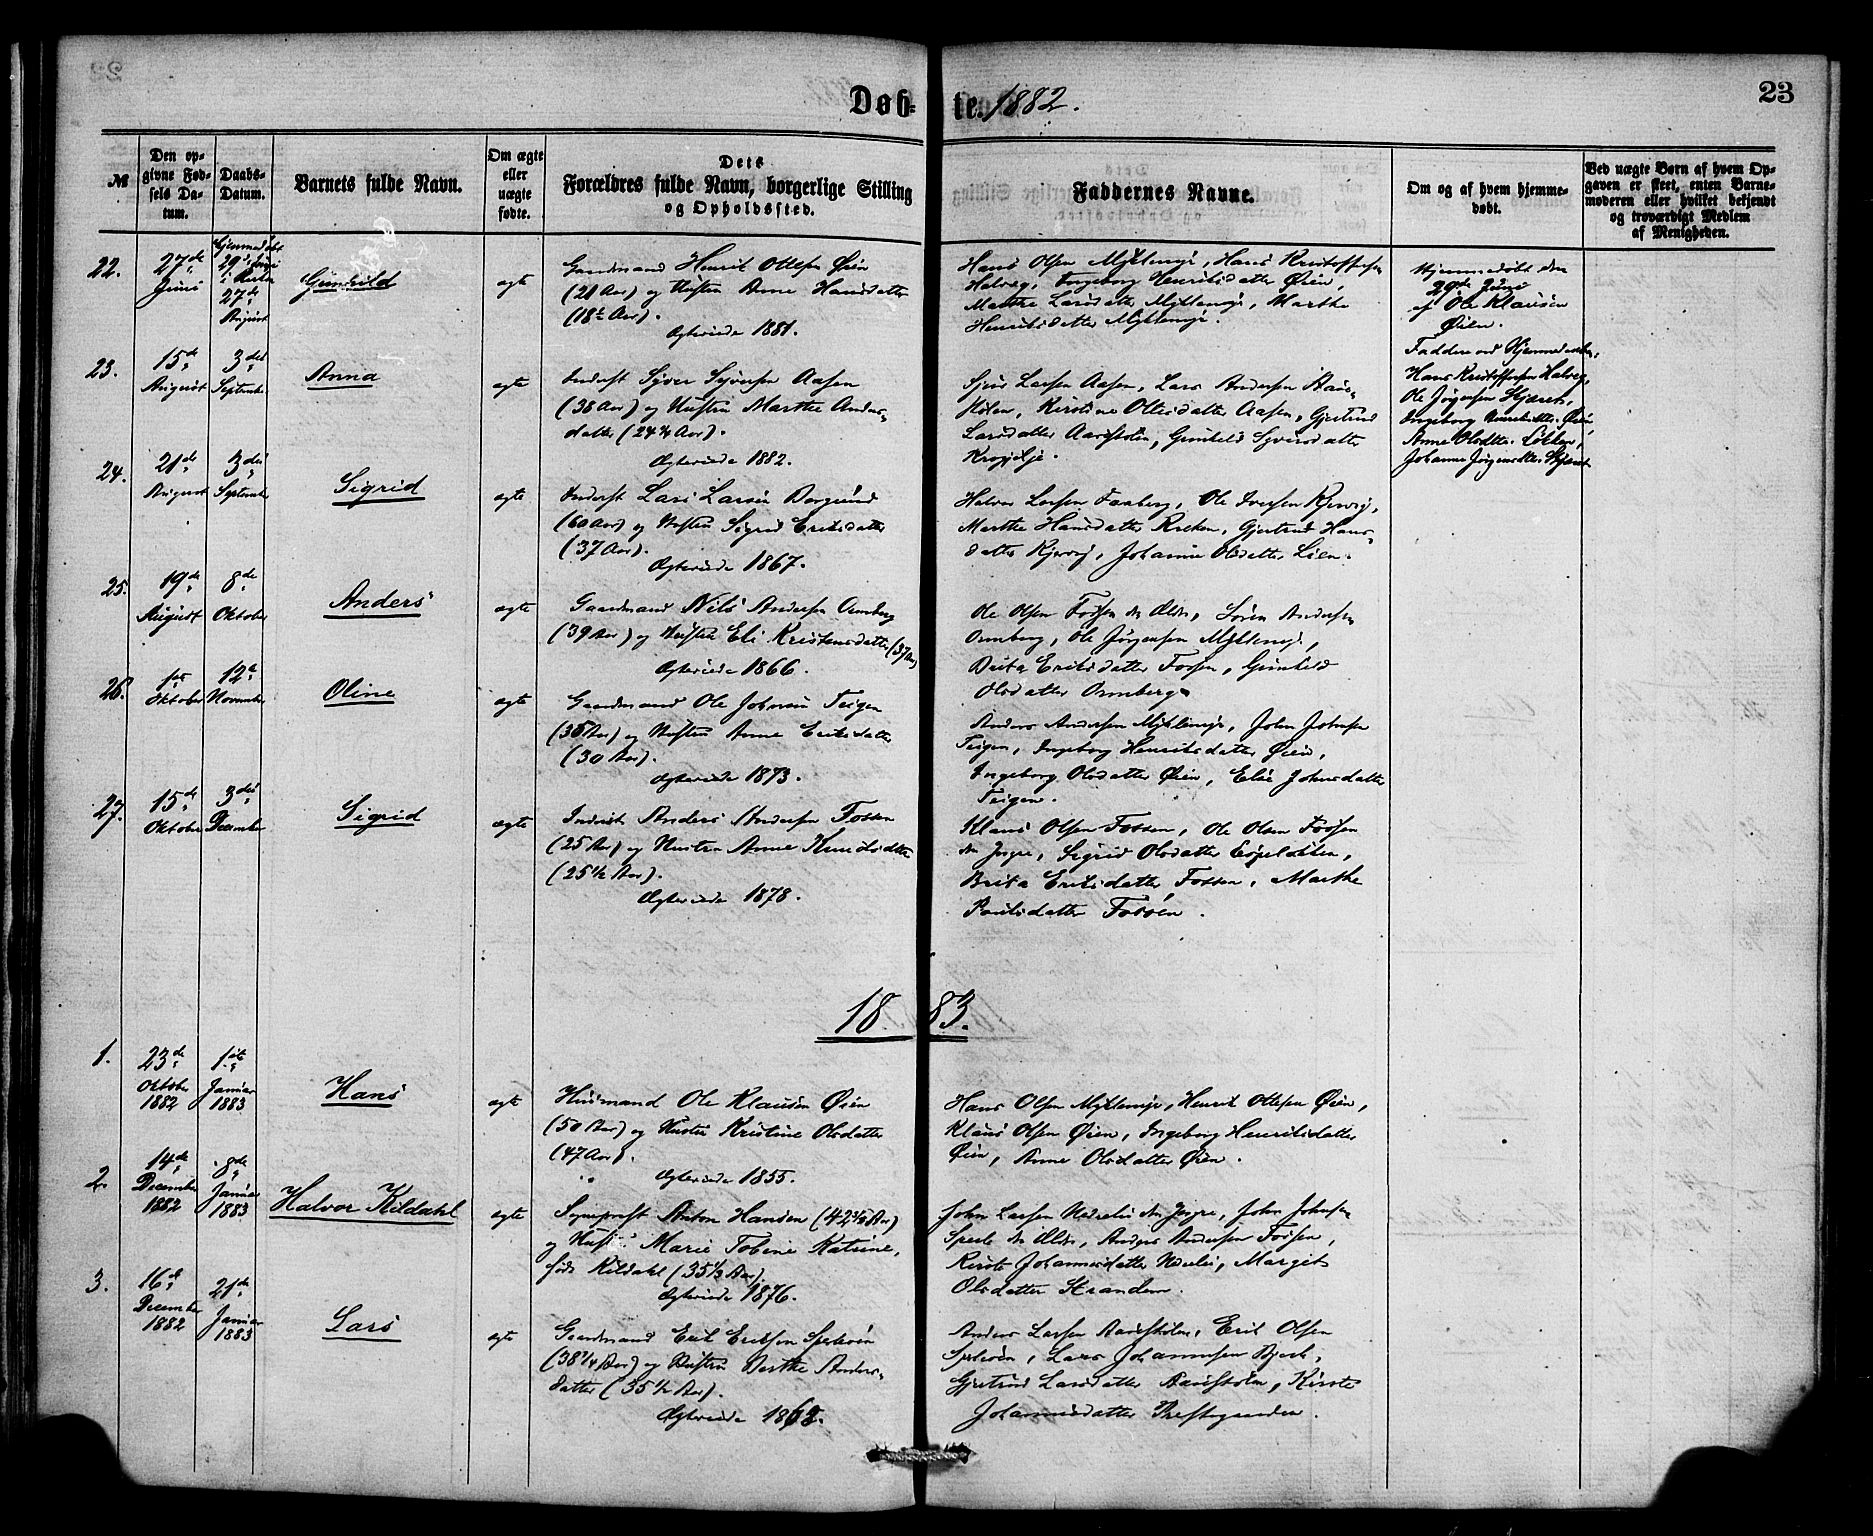 Døb-te. 1882.
23
№
Den op-
givne Fød-
sels Da-
tum.
Daabs-
Datum.
Barnets fulde Navn.
Om ægte
eller
uægte
fødte.
Dets
Forældres fulde Navn, borgerlige Stilling
og Opholdssted.
Faddernes Navne.
Om og af hvem hjemme-
døbt.
Ved uægte Børn af hvem Op-
gaven er skeet, enten Barne-
moderen eller hvilket bekjendt
og troværdigt Medlem
af Menigheden.
22.
27de
Juni
Hjemmedøbt
29de Juni
i Kirken
27de
August
Gunhild
ægte
Gaardmand Henrik Ottesen Øien
(21 Aar) og Hustru Anne Hansdatter
(18½ Aar).
Ægteviede 1881.
Hans Olsen Myklemyr, Hans Kristoffersen
Halveg, Ingeborg Henriksdatter Øien,
Marthe Larsdatter Myklemyr, Marthe
Henriksdatter Myklemyr.
Hjemmedøbt den
29de Juni
af Ole Klausen
Øien.
Faddere ved Hjemmedaaben,
Hans Kristoffersen Halveg,
Ole Jørgensen
Ingeborg Henriksdtr. Øien,
Anne Olsdtr.
Johanne Jørgensdtr.
23.
15de
August
3die
September
Anna
ægte
Inderst Syver Syversen Aasen
(38 Aar) og Hustru Marthe Anders-
datter (24¼ Aar).
Ægteviede 1882.
Larsen Aasen, Lars Andersen
Kirstine Olsdatter Aasen, Gjertrud
Larsdatter Gunhild Syversdatter
24.
21de
August
3die
September
Sigrid
ægte
Inderst Lars Larsen Borgund
(60 Aar) og Hustru Sigrid Eriksdatter
(37 Aar).
Ægteviede 1867.
Halvor Larsen Faaberg, Ole Iversen Kjervig,
Marthe Hansdatter Gjertrud Hans-
datter Kjervig, Johanne Olsdatter Lien.
25.
19de
August
8de
Oktober
Anders
ægte
Gaardmand Nils Andersen Ormberg
(39 Aar) og Hustru Eli Kristensdatter (37 Aar)
Ægteviede 1866.
Ole Olsen Fossen den Ældre, Søren Andersen
Ormberg, Ole Jørgensen Myklemyr,
Brita Eriksdatter Fossen, Gunhild
Olsdatter Ormberg.
26.
1ste
Oktober
12te
November
Oline
ægte
Gaardmand Ole Johnsen Teigen
(36 Aar) og Hustru Anne Eriksdatter
(30 Aar).
Ægteviede 1873.
Anders Andersen Myklemyr, John Johnsen
Teigen, Ingeborg Henriksdatter Øien,
Ingeborg Olsdatter Øien, Elie Johnsdatter
Teigen.
27.
15de
Oktober
3die
December
Sigrid
ægte
Inderst Anders Andersen Fossen
(25 Aar) og Hustru Anne Knudsdatter
(25½ Aar).
Ægteviede 1878.
Klaus Olsen Fossen, Ole Olsen Fossen
den Yngre, Sigrid Olsdatter
Brita Eriksdatter Fossen, Marthe
Poulsdatter Fossen.
1883.
1.
23de
Oktober
1882
1ste
Januar
1883
Hans
ægte
Husmand Ole Klausen Øien
(50 Aar) og Hustru Kristine Olsdatter
(47 Aar).
Ægteviede 1855.
Hans Olsen Myklemyr, Henrik Ottesen Øien,
Klaus Olsen Øien, Ingeborg Henriksdatter
Øien, Anne Olsdatter Øien.
2.
14de
December
1882
8de
Januar
1883
Halvor Kildahl
ægte
Sogneprest Anton Hansen (42 Aar)
og Hustru Marie Tobine Katrine,
født Kildahl (35⅓ Aar).
Ægteviede 1876.
John Larsen den Yngre, John Johnsen
Sperle den Ældre, Anders Andersen Fossen,
Johannesdatter Margit
Olsdatter Stranden.
3.
16de
December
1882
21de
Januar
1883
Lars
ægte
Gaardmand Erik Eriksen
(38¼ Aar) og Hustru Marthe Anders-
datter (35½ Aar).
Ægteviede
Anders Larsen Erik Olsen
Lars Johannesen
Gjertrud Larsdatter
Johannesdatter Prestegaarden.